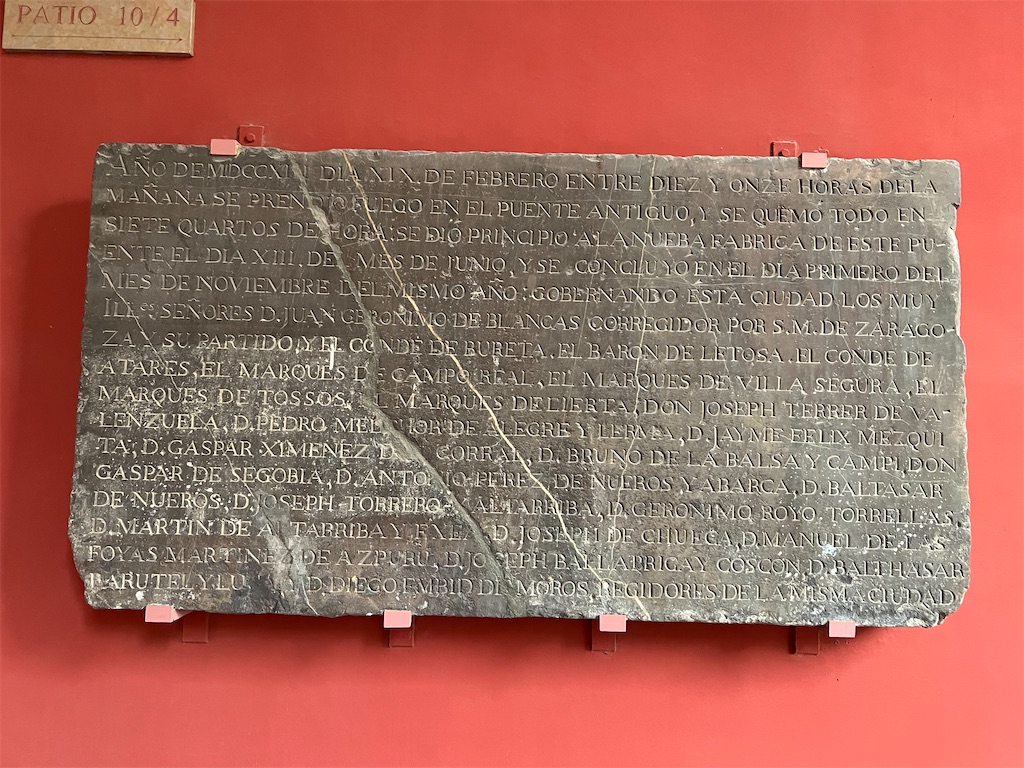 PATIO 10/4
AÑO DE MDCCXI DIA XIX. DE FEBRERO ENTRE DIEZ Y ONZE HORAS DE LA
MAÑANA SE PRENDIO FUEGO EN EL PUENTE ANTIGUO, Y SE QUEMO TODO EN
SIETE QUARTOS DE HORA: SE DIO PRINCIPIO A LA NUEBA FABRICA DE ESTE PU-
ENTE EL DIA XIII. DEL MES DE JUNIO, Y SE CONCLUYO EN EL DIA PRIMERO DEL
MES DE NOVIEMBRE DEL MISMO AÑO: GOBERNANDO ESTA CIUDAD LOS MUY
ILL.es SEÑORES D. JUAN GERONIMO DE BLANCAS CORREGIDOR POR S.M. DE ZARAGO-
ZA Y SU PARTIDO, Y EL CONDE DE BURETA. EL BARON DE LETOSA. EL CONDE DE
ATARES. EL MARQUES DE CAMPO REAL, EL MARQUES DE VILLA SEGURA, EL
MARQUES DE TOSSOS, EL MARQUES DE LIERTA, DON JOSEPH TERRER DE VA-
LENZUELA, D. PEDRO MELCHOR DE ALEGRE Y LERMA, D. JAYME FELIX MEZQUI
TA, D. GASPAR XIMENEZ DEL CORRAL, D. BRUNO DE LA BALSA Y CAMPI, DON
GASPAR DE SEGOBIA, D. ANTONIO PEREZ DE NUEROS Y ABARCA, D. BALTASAR
DE NUEROS, D. JOSEPH TORRERO ALTARRIBA, D. GERONIMO ROYO TORRELLAS,
D. MARTIN DE ALTARRIBA Y D. JOSEPH DE CHUECA, D. MANUEL DE LAS
FOYAS MARTINEZ DE AZPURU, D. JOSEPH BALLABRIGA Y COSCON D. BALTHASAR
BARUTEL Y D. DIEGO EMBID DE MOROS, REGIDORES DE LA MISMA CIUDAD